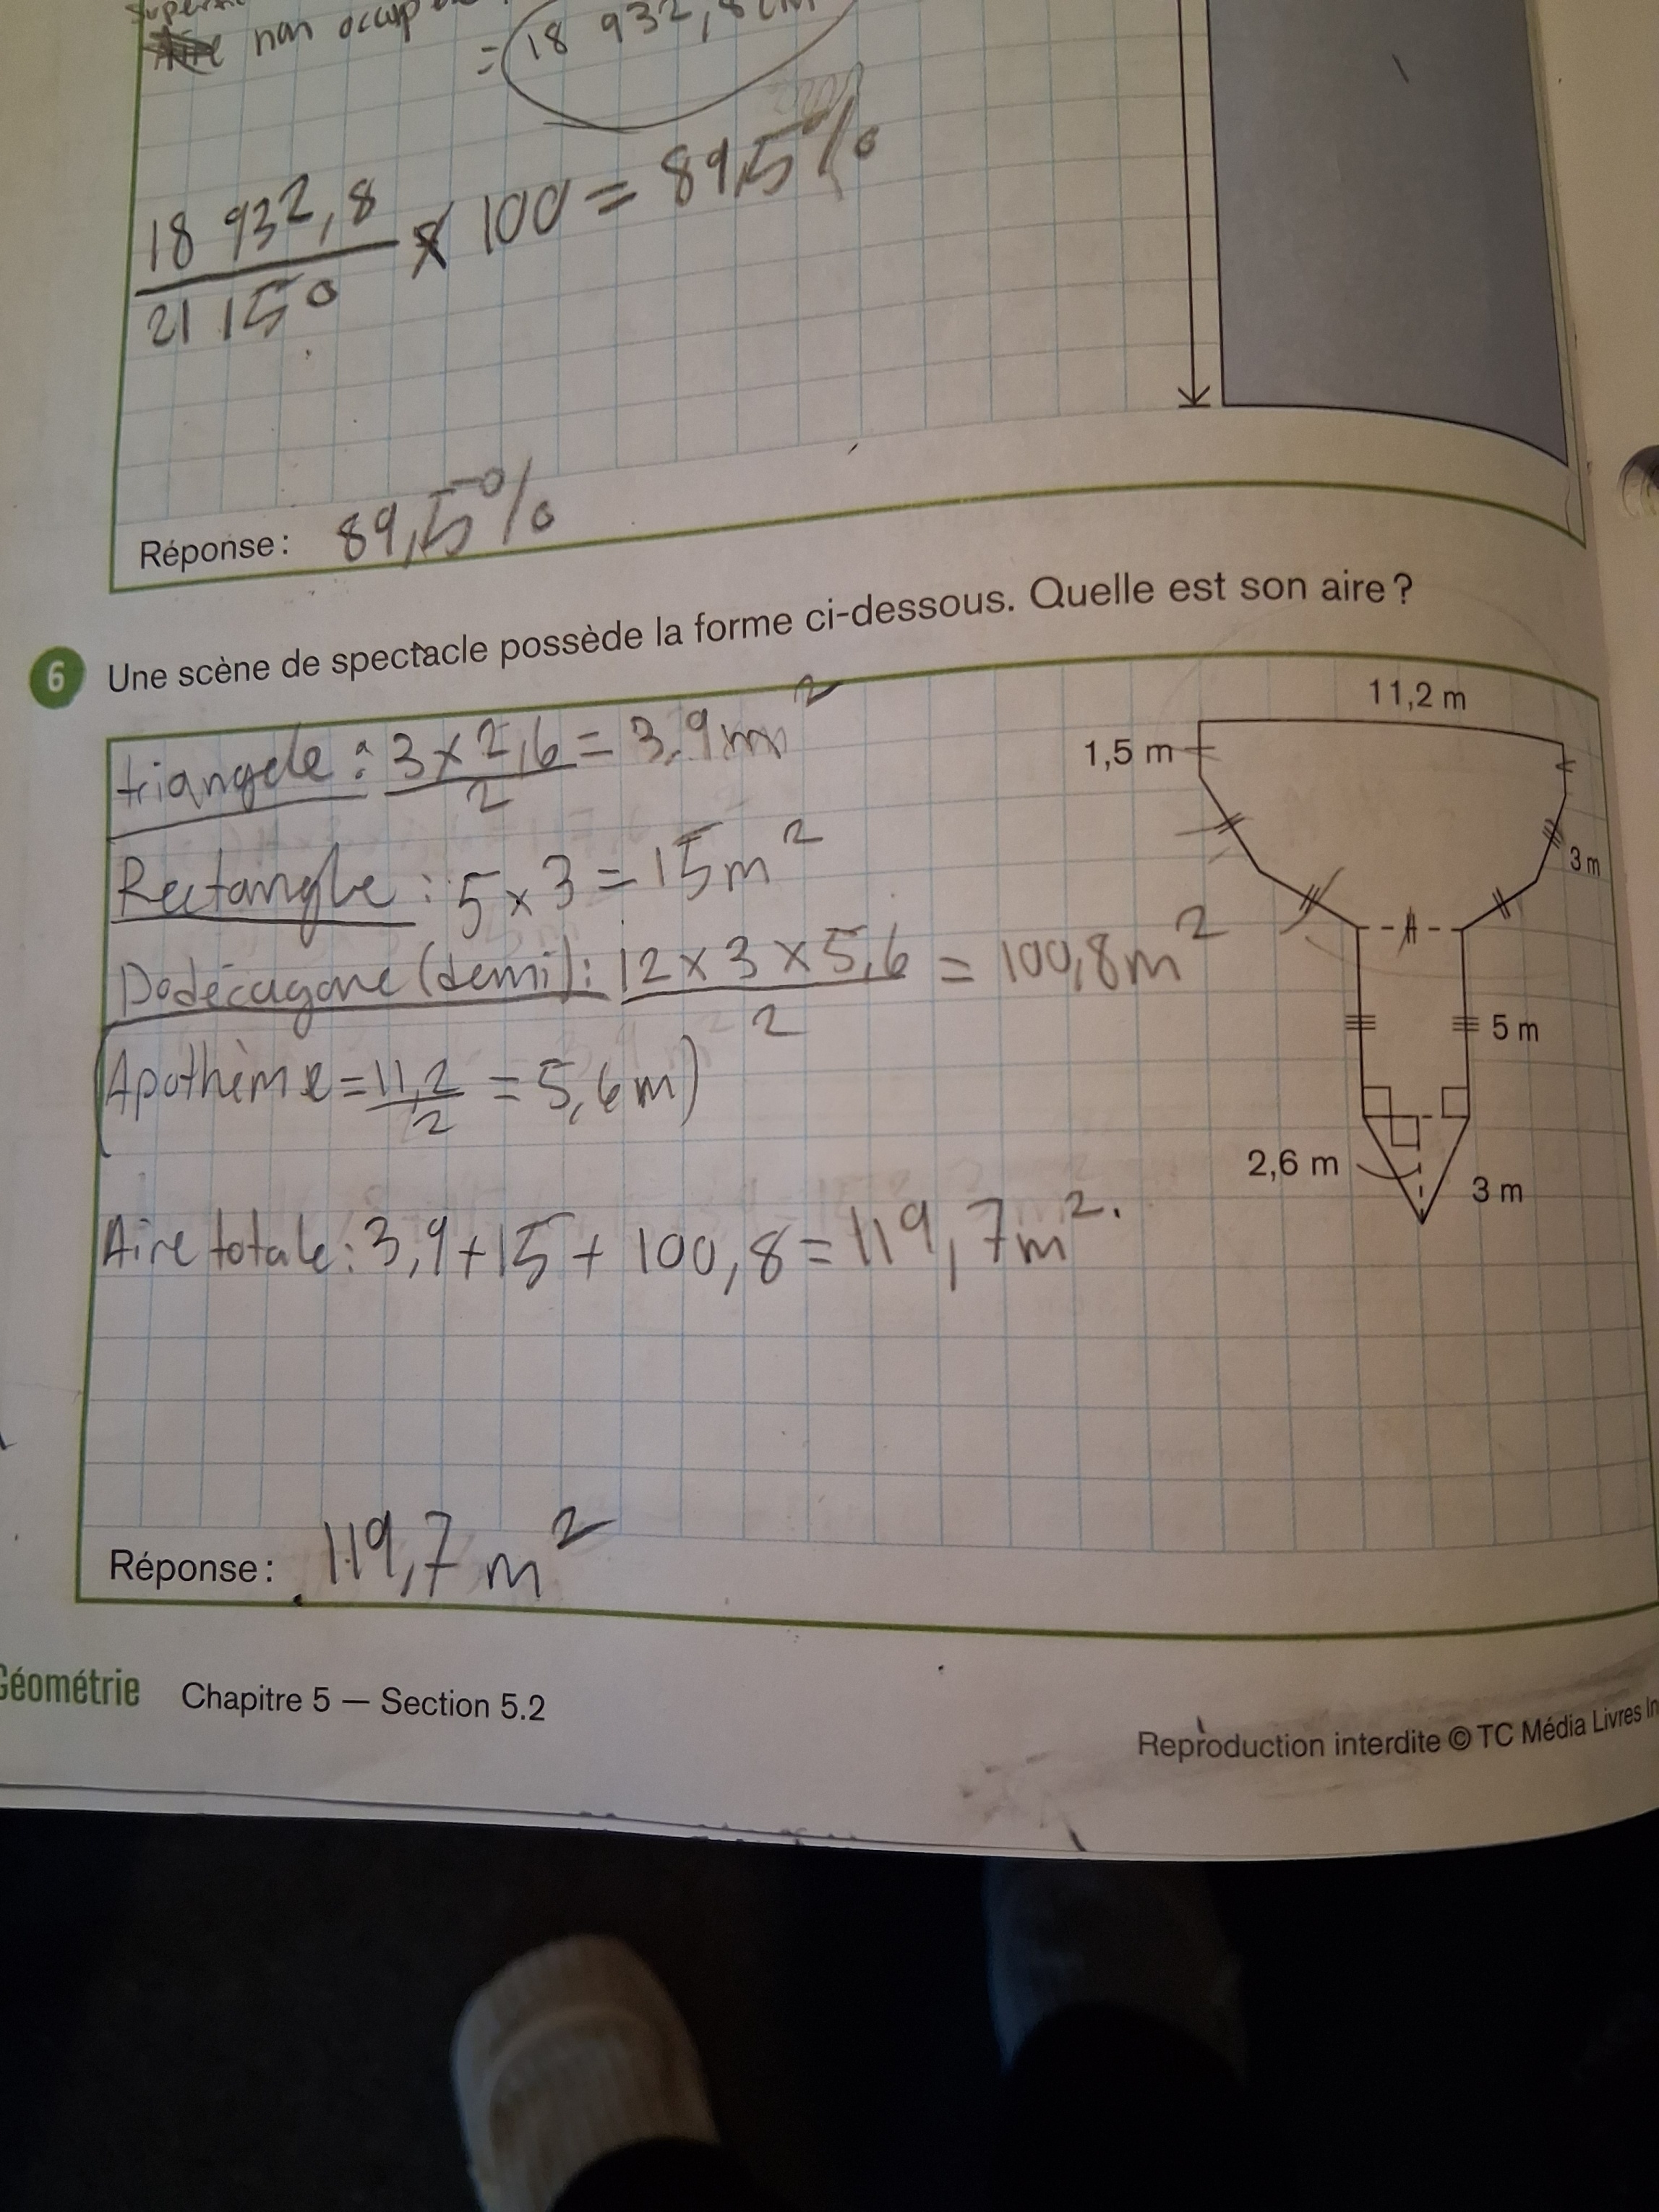 non occup
= 18 932,8 cm
18 932,8 / 21 150 x 100 = 89,5 %
Réponse : 89,5 %
6 Une scène de spectacle possède la forme ci-dessous. Quelle est son aire ?
triangele : 3 x 2,6 / 2 = 3,9 m²
Rectangle : 5 x 3 = 15 m²
Dodécagone (demi) : 12 x 3 x 5,6 / 2 = 100,8 m²
(Apothème = 11,2 / 2 = 5,6 m)
Aire totale : 3,9 + 15 + 100,8 = 119,7 m².
11,2 m
1,5 m
3 m
5 m
2,6 m
3 m
Réponse : 119,7 m²
Géométrie Chapitre 5 — Section 5.2
Reproduction interdite © TC Média Livres In